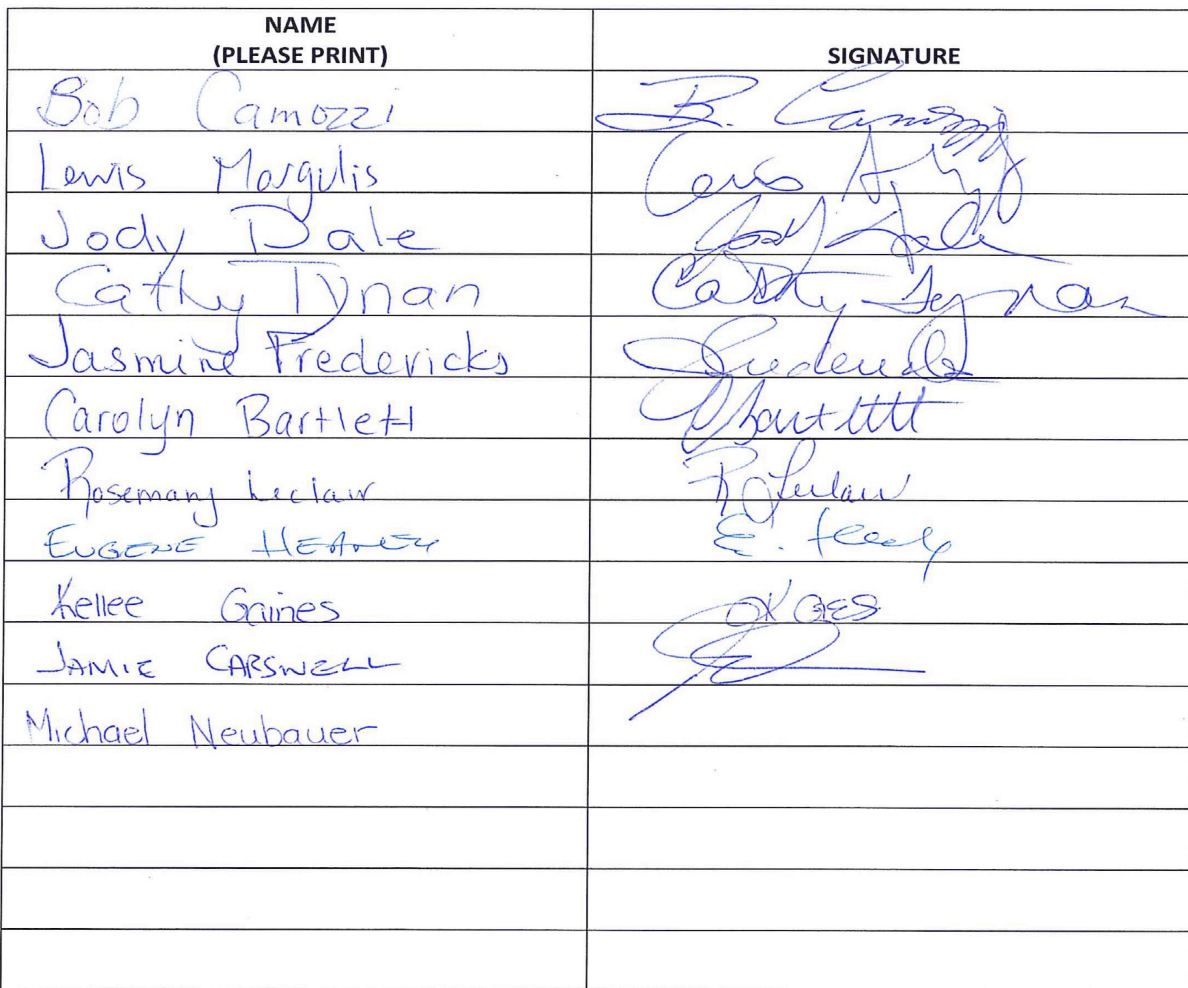 NAME
(PLEASE PRINT) SIGNATURE
Bob Camozzi B. Camozzi
Lewis Margulis
Jody Dale Jody Dale
Cathy Tynan Cathy Tynan
Jasmine Fredericks
Carolyn Bartlett CBartlett
Rosemary Leclair RJLeclair
EUGENE HEANEY E. Heaney
Kellee Gaines
JAMIE CARSWELL
Michael Neubauer